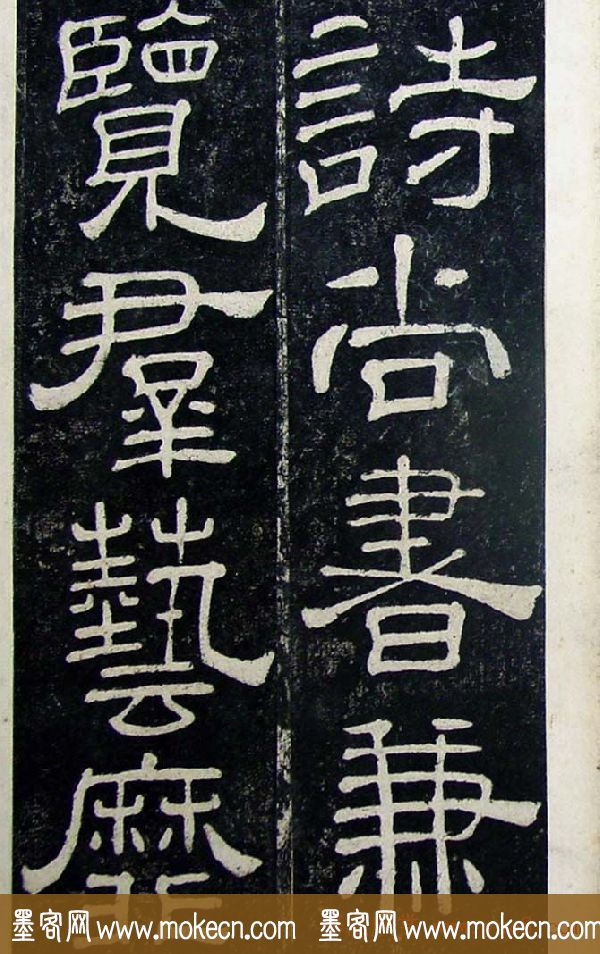 詩尚書兼
覽羣藝靡
墨客网 www.mokecn.com 墨客网 www.mokecn.com